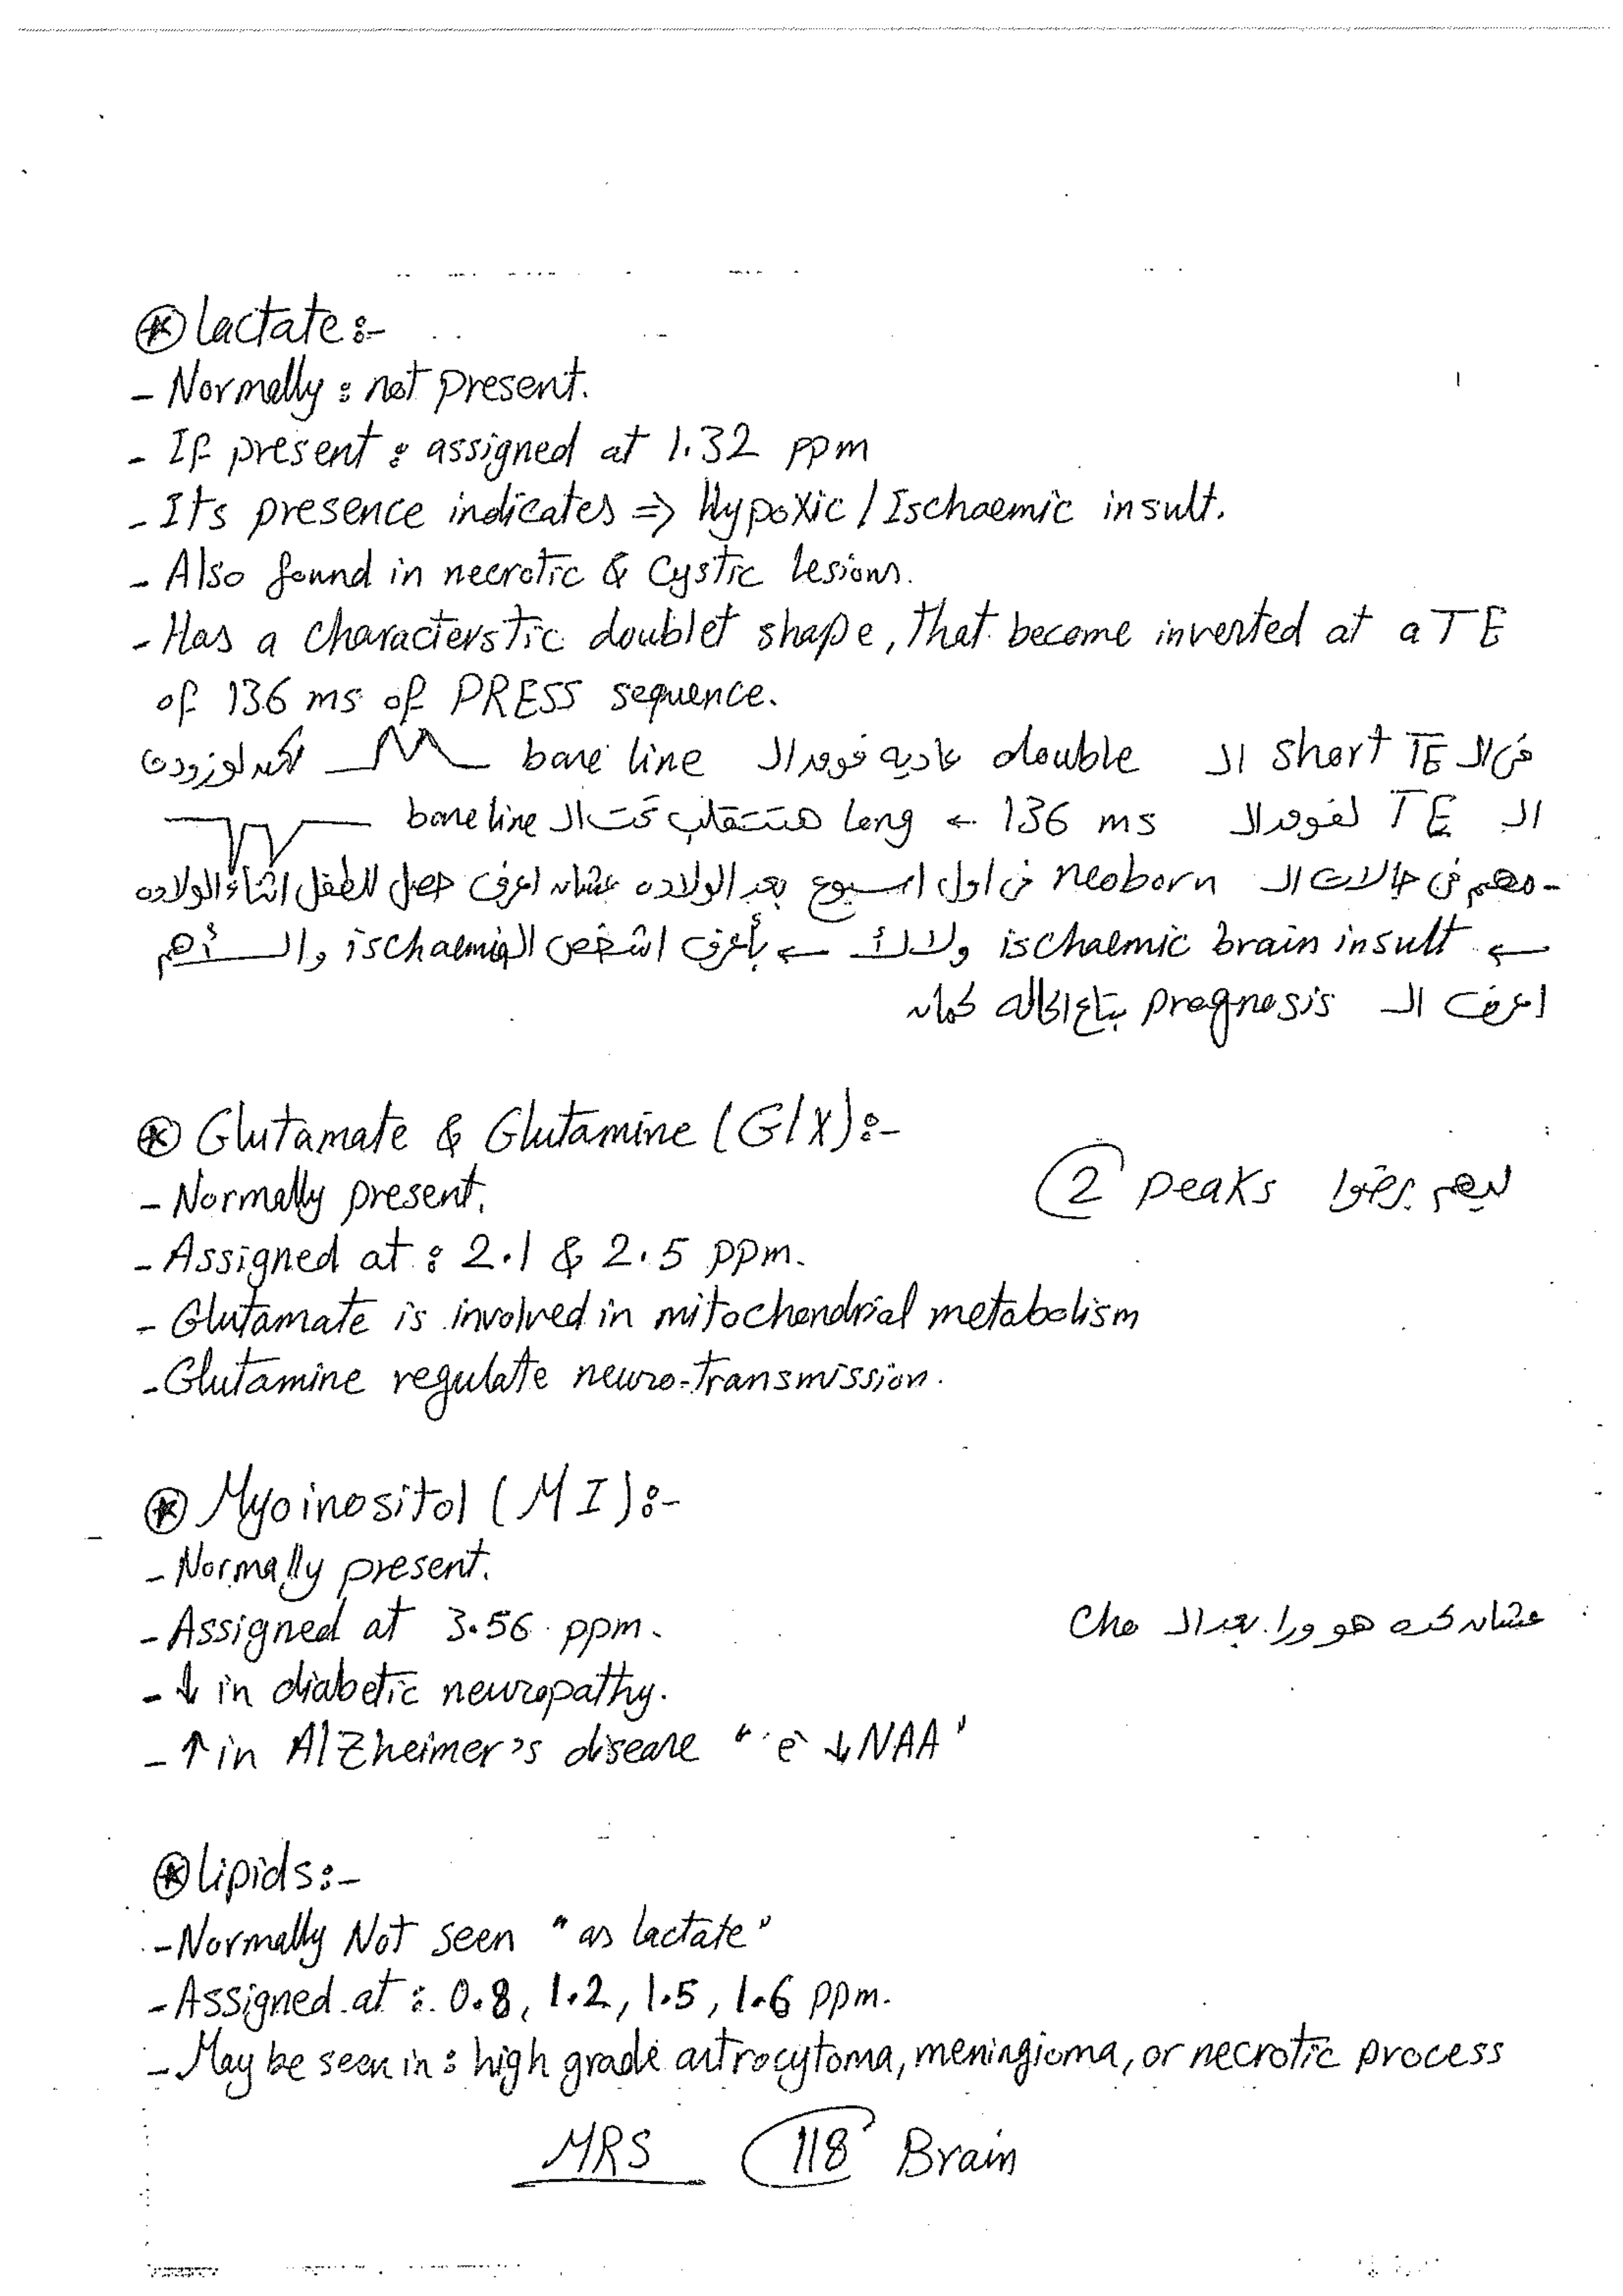 ⊛ Lactate:-
- Normally : not present.
- If present : assigned at 1.32 ppm
- Its presence indicates ⇒ Hypoxic / Ischaemic insult.
- Also found in necrotic & Cystic lesions.
- Has a characterstic doublet shape, that become inverted at a TE
of 136 ms of PRESS sequence.
فى الـ short TE الـ double عاديه فوق الـ base line لكن لو زودت
الـ TE لفوق الـ 136 ms ← long هتتقلب تحت الـ base line
- مهم فى حالات الـ neoborn فى اول اسبوع بعد الولاده عشان اعرف حصل للطفل اثناء الولاده
← ischaemic brain insult ولا لأ ← بأعرف اشخص الـ ischaemia والـــأهم
اعرف الـ prognosis بتاع الحاله كمان
⊛ Glutamate & Glutamine (Glx):-
- Normally present.
ليهم 2 peaks
- Assigned at : 2.1 & 2.5 ppm.
- Glutamate is involved in mitochondrial metabolism
- Glutamine regulate neuro-transmission.
⊛ Myoinositol (MI):-
- Normally present.
- Assigned at 3.56 ppm.
عشان كده هو ورا بعد الـ Cho
- ↓ in diabetic neuropathy.
- ↑ in Alzheimer's disease " e ↓ NAA "
⊛ Lipids:-
- Normally Not seen " as lactate "
- Assigned at : 0.8, 1.2, 1.5, 1.6 ppm.
- May be seen in : high grade astrocytoma, meningioma, or necrotic process
MRS 118 Brain